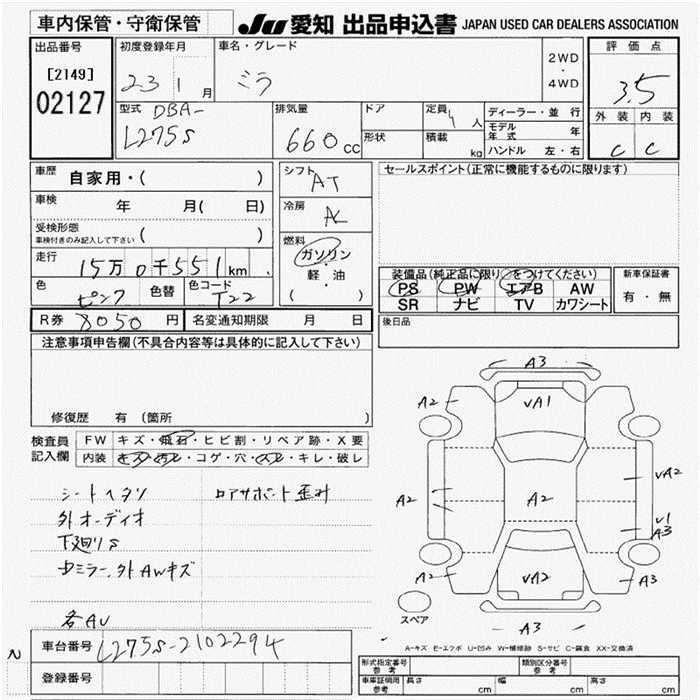 車内保管・守衛保管 JU 愛知 出品申込書 JAPAN USED CAR DEALERS ASSOCIATION
出品番号
[2149]
02127
初度登録年月
23 1 月
車名・グレード
ミラ
2WD
・
4WD
評価点
3.5
外装 内装
C C
型式 DBA-
L275S
排気量
660 cc
ドア
形状
定員 4 人
積載 kg
ディーラー・並行
モデル年式 年
ハンドル 左・右
車歴 自家用・( )
車検 年 月( 日)
受検形態
車検付きのみ記入して下さい ( )
走行 15万0千551km
色 ピンク 色替 色コード T22
シフト AT
冷房 AC
燃料
ガソリン
・
軽・油
( )
セールスポイント(正常に機能するものに限ります)
装備品(純正品に限り○をつけてください)
PS PW エアB AW
SR ナビ TV カワシート
新車保証書
有・無
R券 8050 円 名変通知期限 月 日
後日品
注意事項申告欄(不具合内容等は具体的に記入して下さい)
修復歴 有 (箇所
検査員
記入欄
FW キズ・飛石・ヒビ割・リペア跡・X要
内装 キズ・汚レ・コゲ・穴・スレ・キレ・破レ
シートヘタリ ロアサポート歪み
外オーディオ
下廻りS
ミラー、外AWキズ
各AU
車台番号 L275S-2102294
登録番号
N
A3
A2 VA1
A2 A2 VA2
V1
A3
A2 VA2 A3
スペア
A3
A-キズ E-エクボ U-凹み W-補修跡 S-サビ C-腐食 XX-交換済
形式指定番号
参考
類別区分番号
参考
車庫証明用
参考
長さ cm 幅 cm 高さ cm